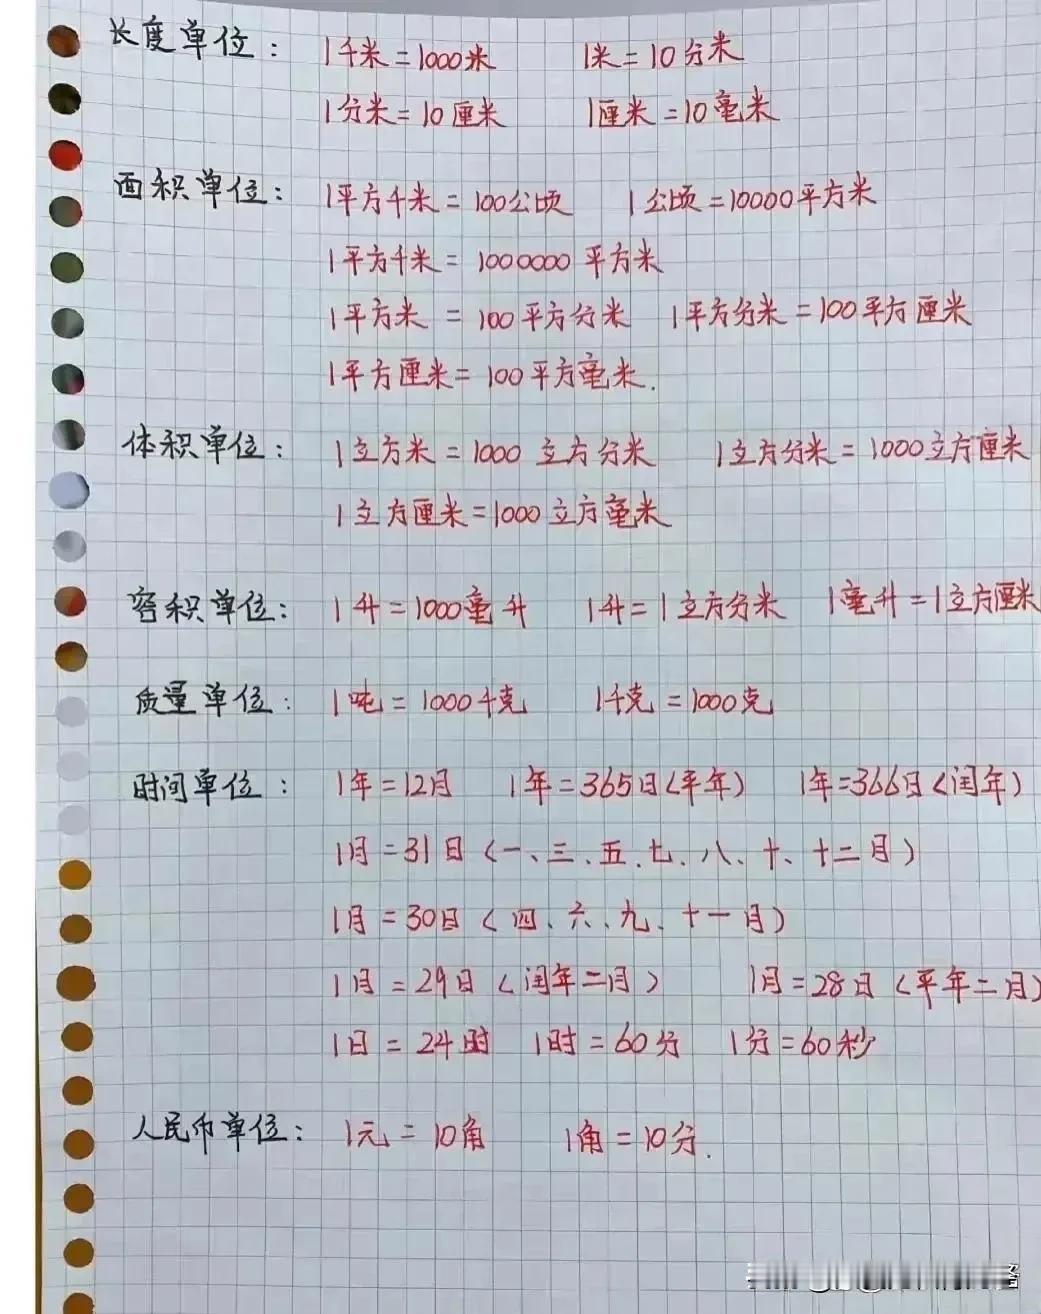 长度单位： 1千米=1000米 1米=10分米
1分米=10厘米 1厘米=10毫米
面积单位： 1平方千米=100公顷 1公顷=10000平方米
1平方千米=1000000平方米
1平方米=100平方分米 1平方分米=100平方厘米
1平方厘米=100平方毫米.
体积单位： 1立方米=1000立方分米 1立方分米=1000立方厘米
1立方厘米=1000立方毫米
容积单位： 1升=1000毫升 1升=1立方分米 1毫升=1立方厘米
质量单位： 1吨=1000千克 1千克=1000克
时间单位： 1年=12月 1年=365日(平年) 1年=366日(闰年)
1月=31日(一、三、五、七、八、十、十二月)
1月=30日(四、六、九、十一月)
1月=29日(闰年二月) 1月=28日(平年二月)
1日=24时 1时=60分 1分=60秒
人民币单位： 1元=10角 1角=10分.